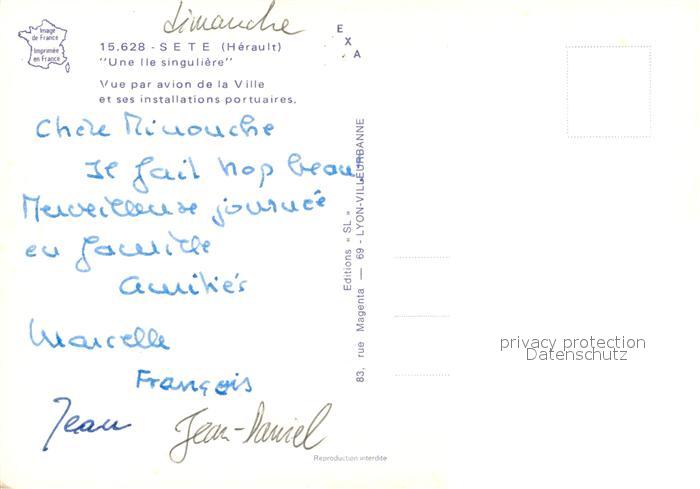 dimanche
Image
de France
Imprimée
en France
15.628 - SETE (Hérault)
"Une Ile singulière"
Vue par avion de la Ville
et ses installations portuaires.
E
X
A
Chère Minouche
Il fait trop beau
Merveilleuse journée
en famille
amitiés
Marcelle
François
Jean
Jean-Daniel
Editions « SL »
83, rue Magenta — 69 - LYON-VILLEURBANNE
Reproduction interdite
privacy protection
Datenschutz